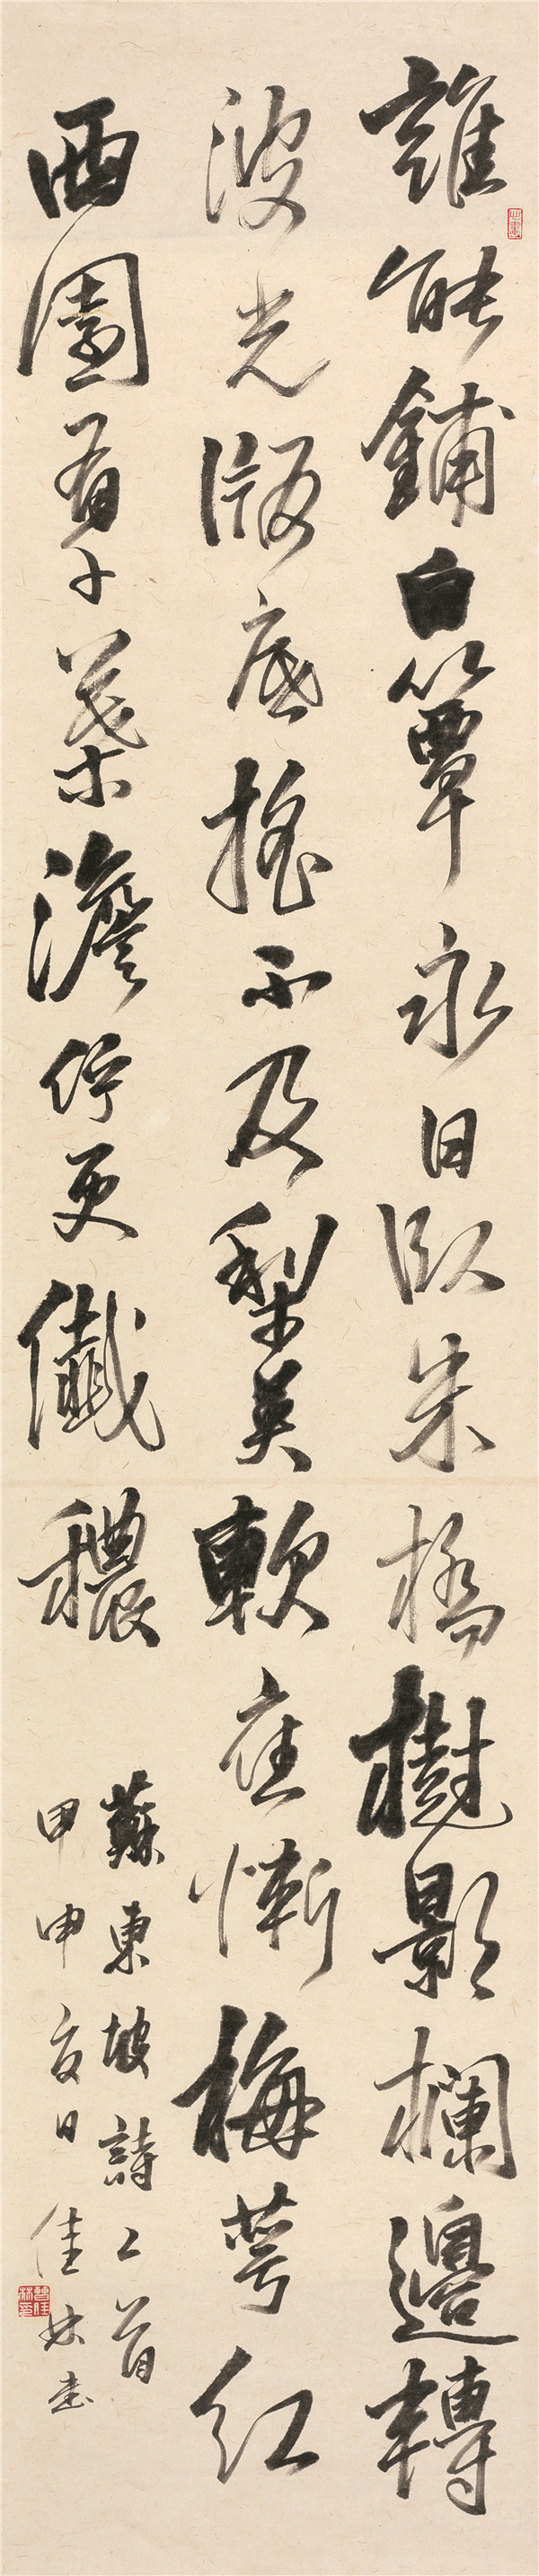 誰能鋪白簟永日臥朱橋樹影欄邊轉
波光版底搖不及梨英軟應慚梅萼紅
西園有千葉澹佇更纖穠
蘇東坡詩二首
甲申夏日佳林書